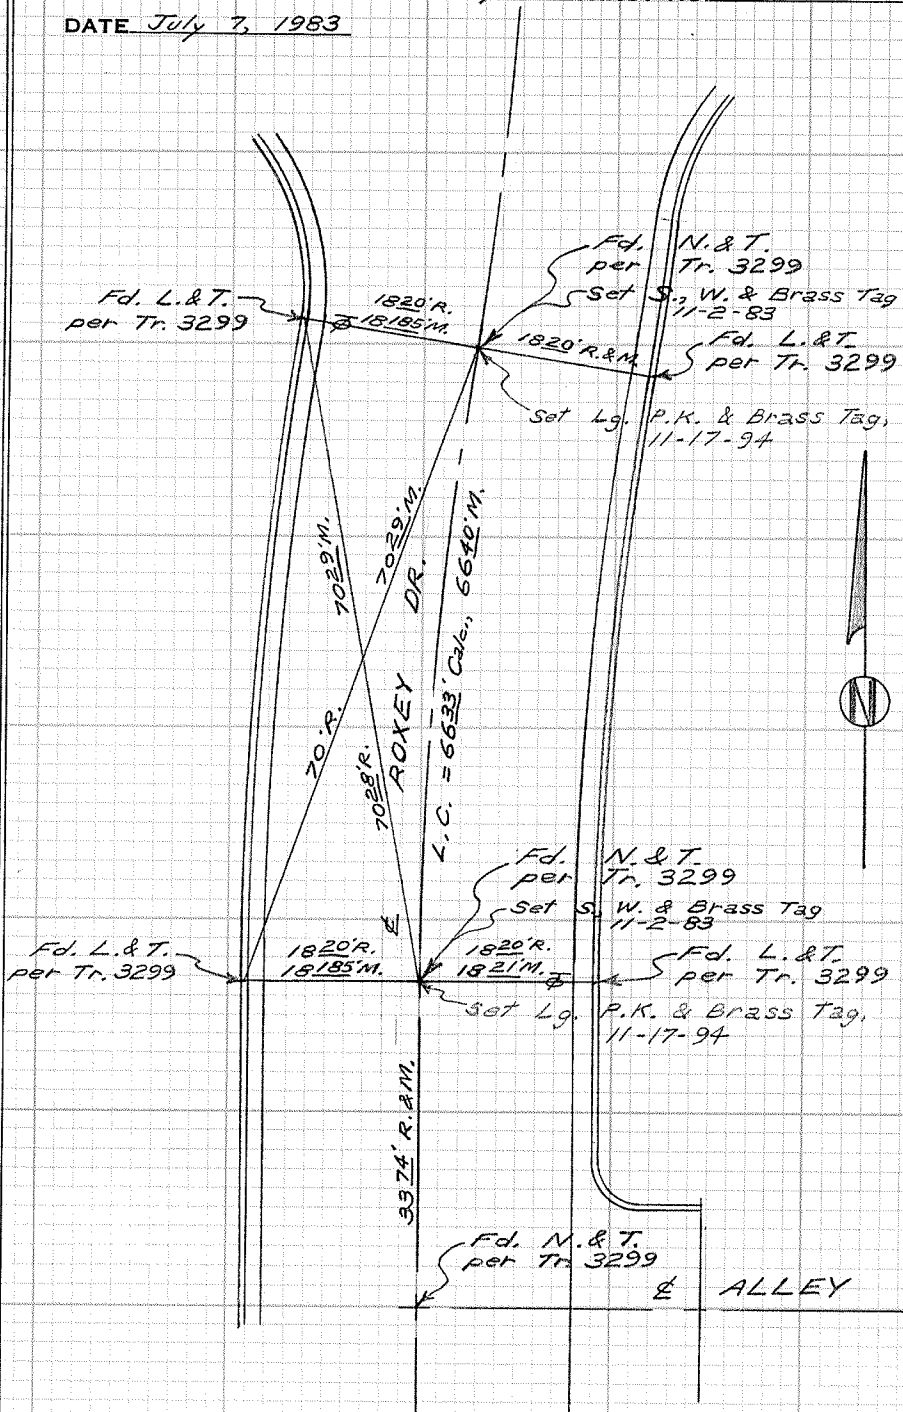 DATE July 7, 1983
Fd. N. & T.
per Tr. 3299
Set S., W. & Brass Tag
11-2-83
Fd. L. & T.
per Tr. 3299
18 20' R.
18 185' M.
18 20' R. & M.
Fd. L. & T.
per Tr. 3299
Set Lg. P.K. & Brass Tag,
11-17-94
70 29' M.
70 29' M.
DR.
L.C. = 66 33' Calc., 66 40' M.
N
ROXEY
70' R.
70 28' R.
Fd. N. & T.
per Tr. 3299
Set S., W. & Brass Tag
11-2-83
℄
Fd. L. & T.
per Tr. 3299
18 20' R.
18 185' M.
18 20' R.
18 21' M.
Fd. L. & T.
per Tr. 3299
Set Lg. P.K. & Brass Tag,
11-17-94
33 74' R. & M.
Fd. N. & T.
per Tr. 3299
℄ ALLEY